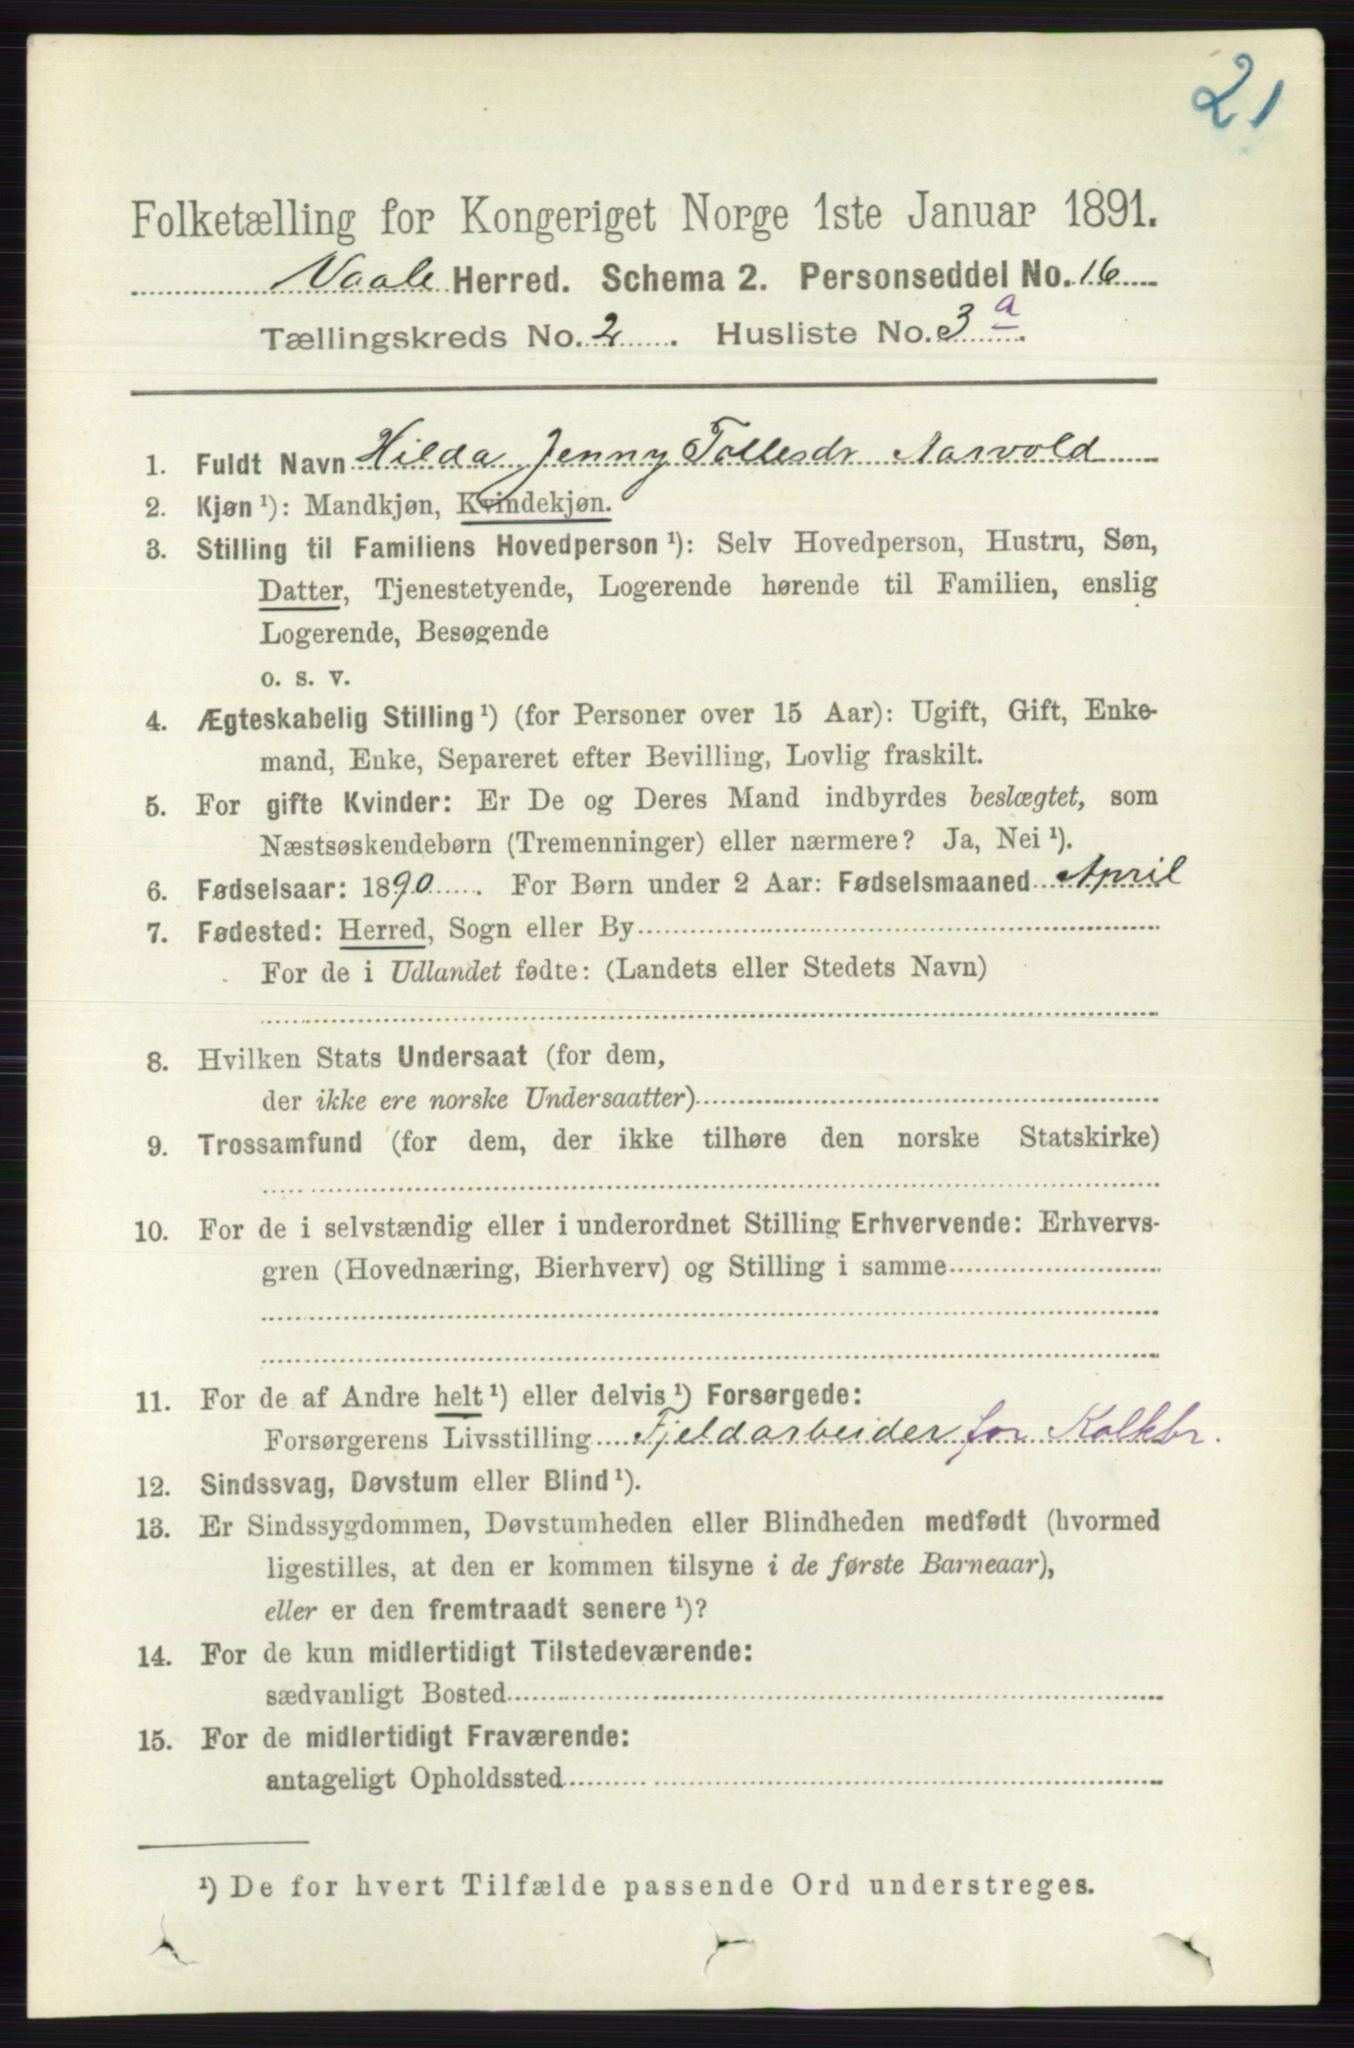 21
Folketælling for Kongeriget Norge 1ste Januar 1891.
Vaale Herred. Schema 2. Personseddel No. 16
Tællingskreds No. 2. Husliste No. 3 a.
1. Fuldt Navn Hilda Jenny Tollesdr Aarvold
2. Kjøn ¹): Mandkjøn, Kvindekjøn.
3. Stilling til Familiens Hovedperson ¹): Selv Hovedperson, Hustru, Søn,
Datter, Tjenestetyende, Logerende hørende til Familien, enslig
Logerende, Besøgende
o. s. v.
4. Ægteskabelig Stilling ¹) (for Personer over 15 Aar): Ugift, Gift, Enke-
mand, Enke, Separeret efter Bevilling, Lovlig fraskilt.
5. For gifte Kvinder: Er De og Deres Mand indbyrdes beslægtet, som
Næstsøskendebørn (Tremenninger) eller nærmere? Ja, Nei ¹).
6. Fødselsaar: 1890. For Børn under 2 Aar: Fødselsmaaned April
7. Fødested: Herred, Sogn eller By
For de i Udlandet fødte: (Landets eller Stedets Navn)
8. Hvilken Stats Undersaat (for dem,
der ikke ere norske Undersaatter)
9. Trossamfund (for dem, der ikke tilhøre den norske Statskirke)
10. For de i selvstændig eller i underordnet Stilling Erhvervende: Erhvervs-
gren (Hovednæring, Bierhverv) og Stilling i samme
11. For de af Andre helt ¹) eller delvis ¹) Forsørgede:
Forsørgerens Livsstilling Fjeldarbeider for Kalkbr.
12. Sindssvag, Døvstum eller Blind ¹).
13. Er Sindssygdommen, Døvstumheden eller Blindheden medfødt (hvormed
ligestilles, at den er kommen tilsyne i de første Barneaar),
eller er den fremtraadt senere ¹)?
14. For de kun midlertidigt Tilstedeværende:
sædvanligt Bosted
15. For de midlertidigt Fraværende:
antageligt Opholdssted
¹) De for hvert Tilfælde passende Ord understreges.